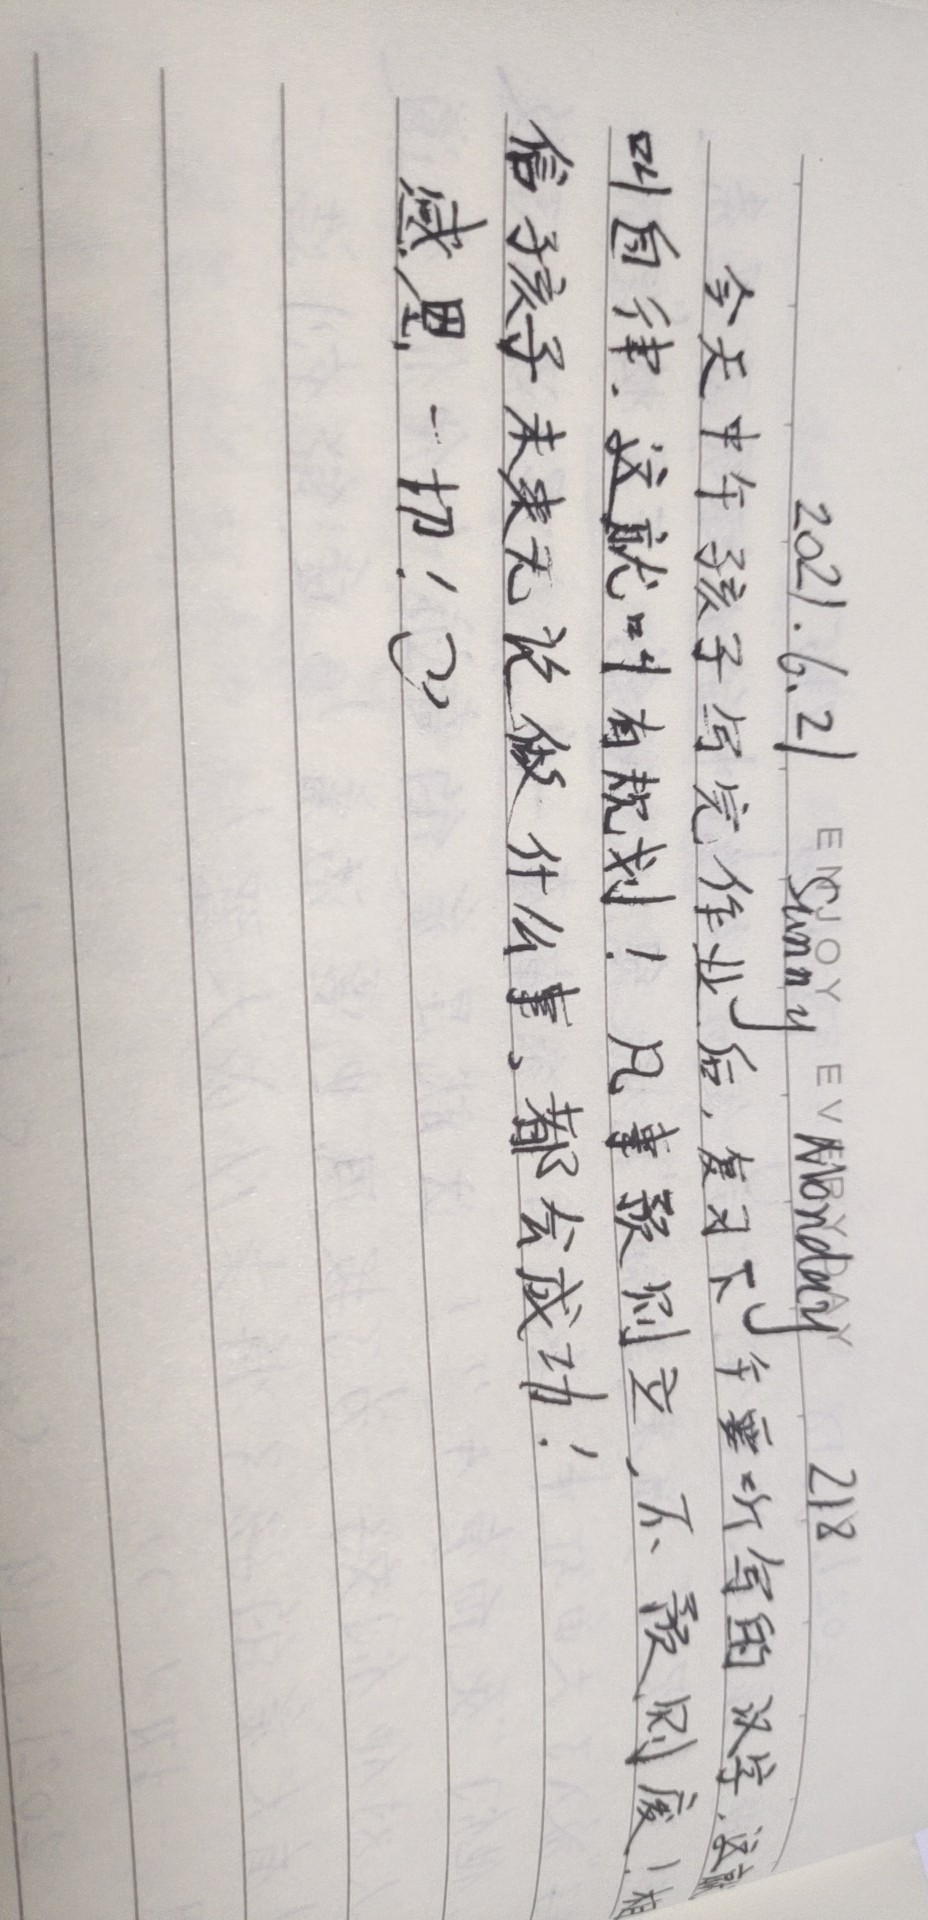 ENJOY EVERYDAY
2021.6.21 Sunny Monday 218
今天中午孩子写完作业后,复习下午要听写的汉字,这就
叫自律.这就叫有规划!凡事预则立,不预则废!相
信孩子未来无论做什么事、都会成功!
感恩一切!